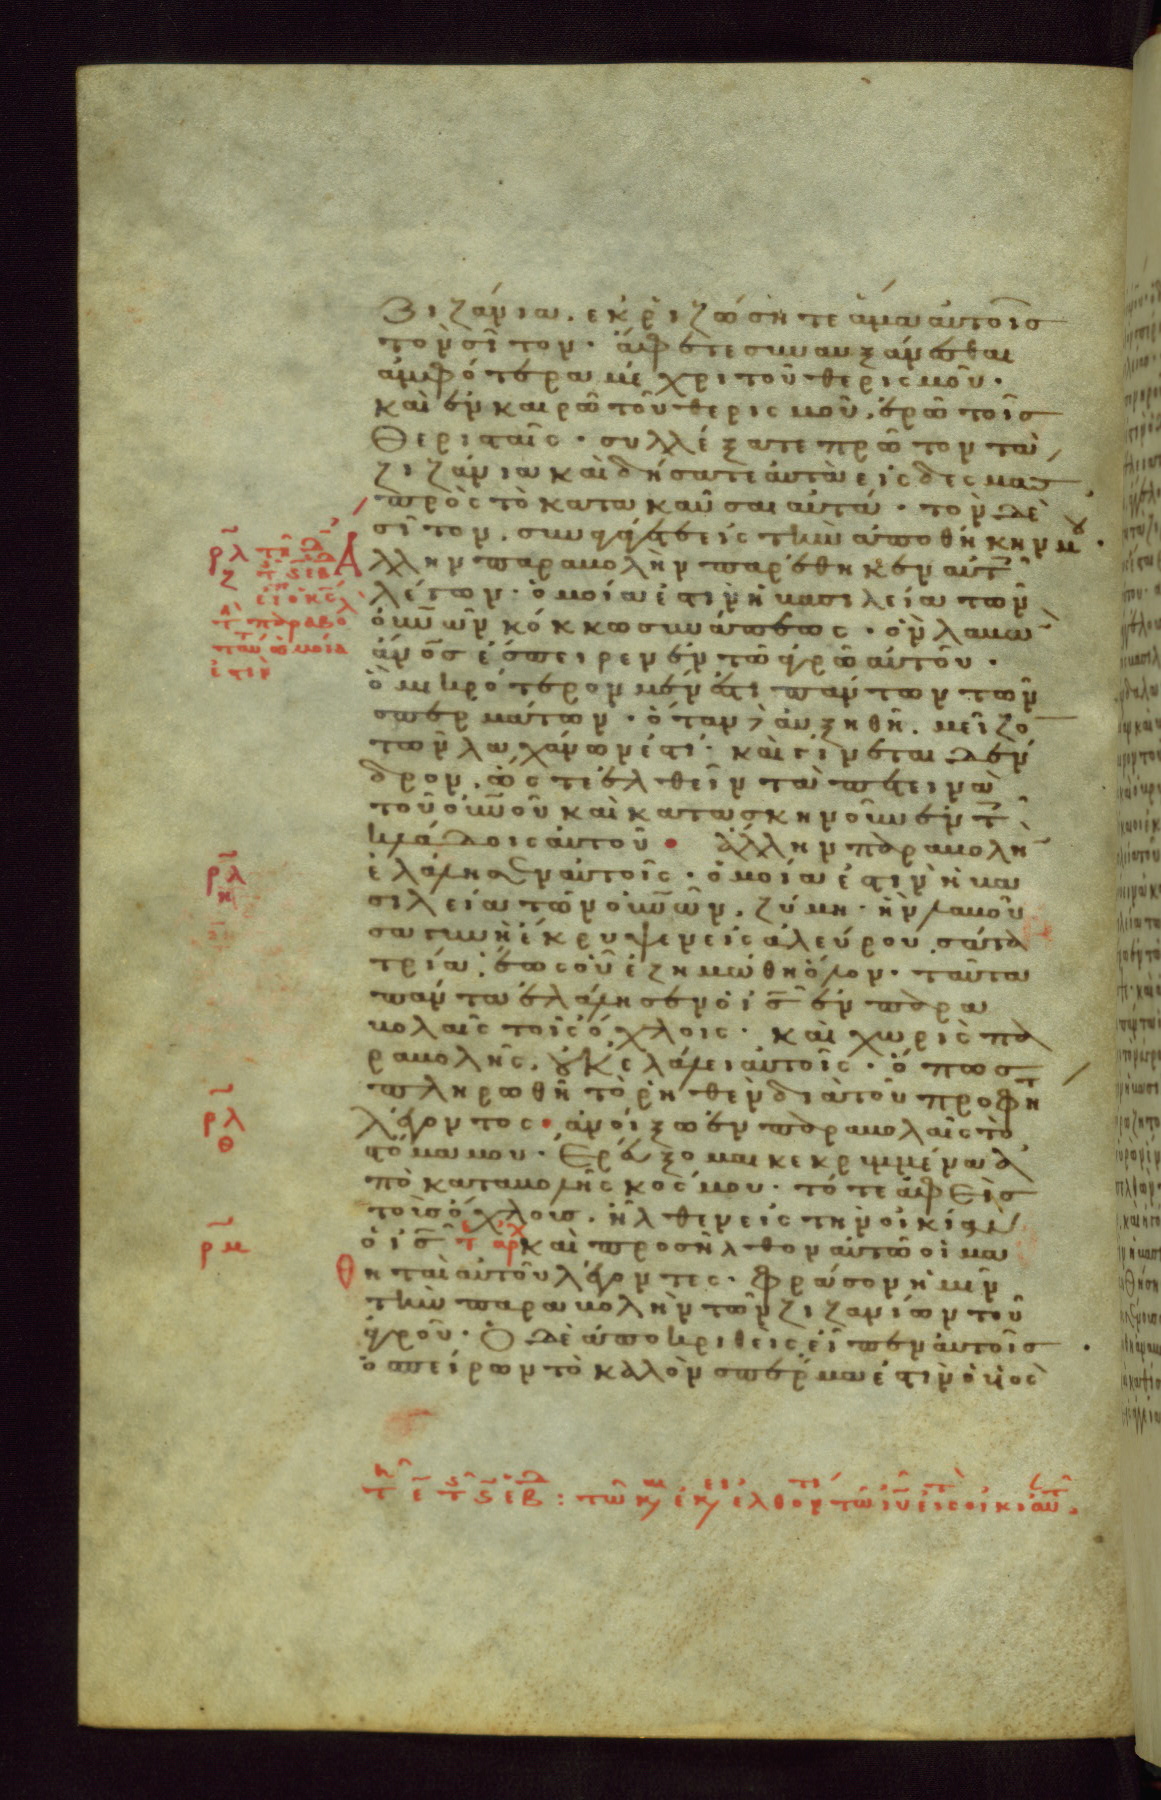 ζιζάνια. ἐκριζώσητε ἅμα αὐτοῖς
τὸν σῖτον· ἄφετε συναυξάνεσθαι
ἀμφότερα μέχρι τοῦ θερισμοῦ·
καὶ ἐν καιρῶ τοῦ θερισμοῦ, ἐρῶ τοῖς
θερισταῖς· συλλέξατε πρῶτον τὰ
ζιζάνια καὶ δήσατε αὐτὰ εἰς δεσμὰς
πρὸς τὸ κατακαῦσαι αὐτά· τὸν δὲ
σῖτον, συναγάγετε εἰς τὴν ἀποθήκην μου·
ρλζ
Ἄλλην παραβολὴν παρέθηκεν αὐτοῖς
λέγων· ὁμοία ἐστὶν ἡ βασιλεία τῶν
οὐνῶν κόκκω σινάπεως· ὃν λαβὼν
ἀνος ἔσπειρεν ἐν τῶ ἀγρῶ αὐτοῦ·
ὃ μικρότερον μέν ἐστι πάντων τῶν
σπερμάτων· ὅταν δὲ αὐξηθῆ, μεῖζον
τῶν λαχάνων ἐστί· καὶ γίνεται δέν
δρον, ὥστε ἐλθεῖν τὰ πετεινὰ
τοῦ οὐνοῦ καὶ κατασκηνοῦν ἐν τοῖς
κλάδοις αὐτοῦ· ἄλλην παραβολὴν
ρλη
ἐλάλησεν αὐτοῖς· ὁμοία ἐστὶν ἡ βα
σιλεία τῶν οὐνῶν, ζύμη· ἣν λαβοῦ
σα γυνὴ ἔκρυψεν εἰς ἀλεύρου σάτα
τρία, ἕως οὗ ἐζημώθη ὅλον· ταῦτα
πάντα ἐλάλησεν ὁ ις ἐν παρα
βολαῖς τοῖς ὄχλοις· καὶ χωρὶς πα
ραβολῆς, οὐκ ἐλάλει αὐτοῖς· ὅπως
πληρωθῆ τὸ ῥηθὲν διὰ τοῦ προφήτου
ρλθ
λέγοντος· ἀνοίξω ἐν παραβολαῖς τὸ
στόμα μου· ἐρεύξομαι κεκρυμμένα ἀ
πὸ καταβολῆς κόσμου· τότε ἀφεὶς
τοὺς ὄχλους, ἦλθεν εἰς τὴν οἰκίαν
ρμ
ὁ ις καὶ προσῆλθον αὐτῶ οἱ μα
θηταὶ αὐτοῦ λέγοντες· φράσον ἡμῖν
τὴν παραβολὴν τῶν ζιζανίων τοῦ
ἀγροῦ· ὁ δὲ ἀποκριθεὶς εἶπεν αὐτοῖς
ὁ σπείρων τὸ καλὸν σπέρμα ἐστὶν ὁ υἱὸς